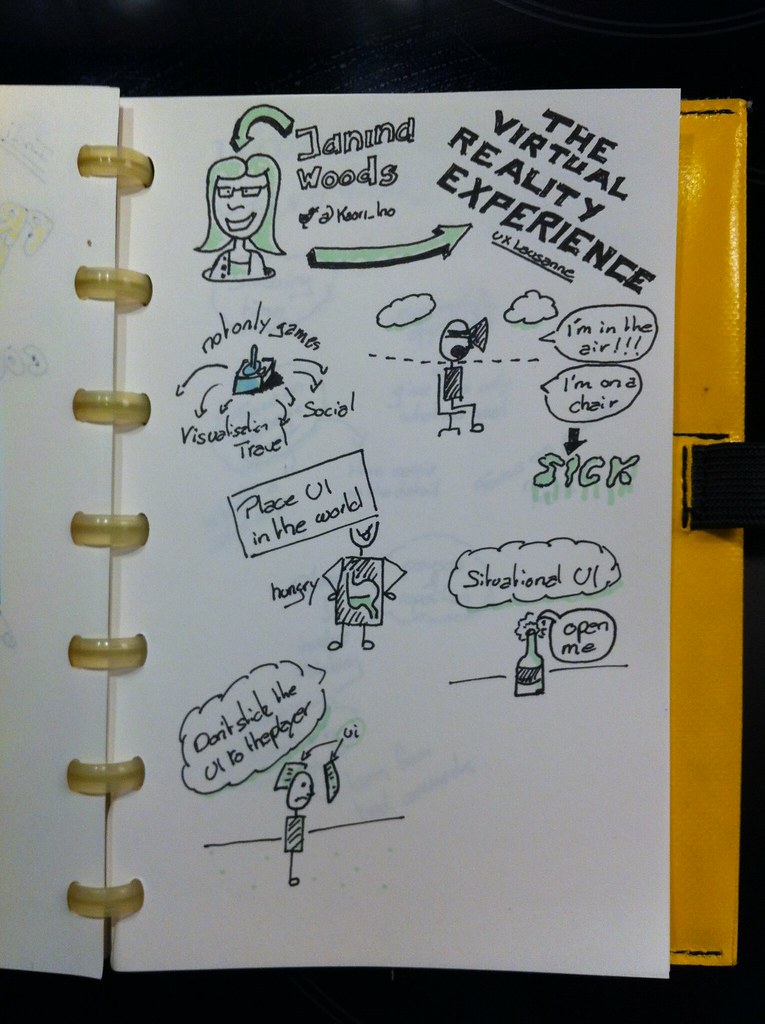 Janina
Woods
@Keori_Ino
THE
VIRTUAL
REALITY
EXPERIENCE
UX Lausanne
not only games
Visualisation
Travel
Social
I'm in the
air!!!
I'm on a
chair
SICK
Place UI
in the world
hungry
Situational UI
open
me
Don't stick the
UI to the player
ui